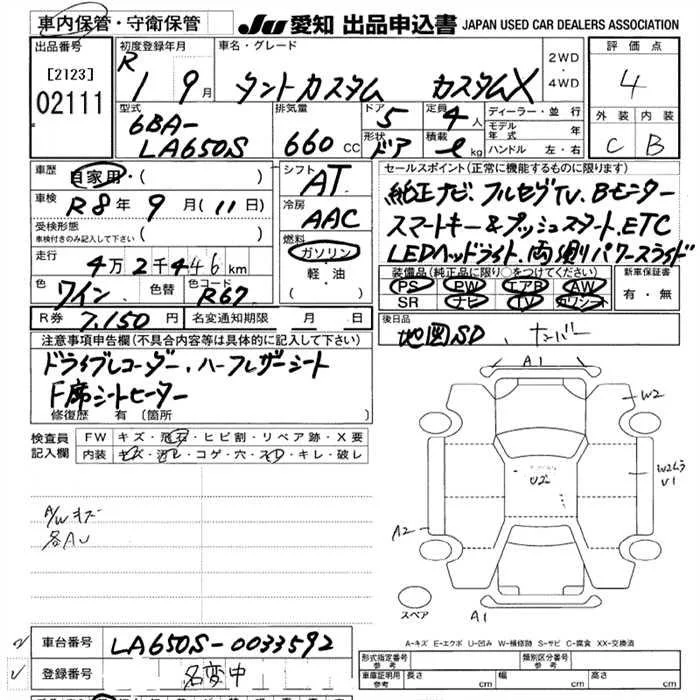 車内保管・守衛保管 JU 愛知 出品申込書 JAPAN USED CAR DEALERS ASSOCIATION
出品番号 初度登録年月 車名・グレード 評価点
[2123] R 1 9月 タントカスタム カスタムX 2WD・4WD 4
02111 型式 排気量 ドア 5 定員 4人 ディーラー・並行 外装 内装
6BA- モデル年式 年 C B
LA650S 660cc 形状 ドア 積載 kg ハンドル 左・右
車歴 自家用・( ) シフト AT セールスポイント(正常に機能するものに限ります)
車検 R8年9月(11日) 冷房 純正ナビ、フルセグTV、Bモニター
受検形態 AAC スマートキー&プッシュスタート、ETC
車検付きのみ記入して下さい ( ) 燃料 LEDヘッドライト、両側パワースライド
走行 ガソリン 装備品(純正品に限り○をつけてください) 新車保証書
4万2千446km 軽・油 PS PW エアB AW 有・無
色 ワイン 色替 色コード R67 ( ) SR ナビ TV サンルーフ
R券 7,150円 名変通知期限 月 日 後日品
注意事項申告欄(不具合内容等は具体的に記入して下さい) 地図SD、ナンバー
ドライブレコーダー、ハーフレザーシート A1
F席シートヒーター W2
修復歴 有(箇所
検査員記入欄 FW キズ・飛石・ヒビ割・リペア跡・X要
内装 キズ・汚レ・コゲ・穴・スレ・キレ・破レ
U2
U1
A/Wキズ A2
各AU
スペア A1
A-キズ E-エクボ U-凹み W-補修跡 S-サビ C-腐食 XX-交換済
車台番号 LA650S-0033592 形式指定番号 参考 類別区分番号 参考
登録番号 名変中 車庫証明用 参考 長さ cm 幅 cm 高さ cm